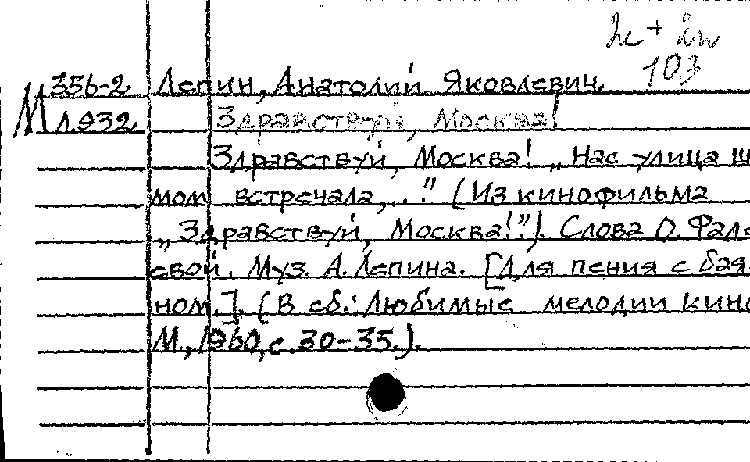 103
356-2 Лепин, Анатолий Яковлевич.
М Л932 Здравствуй, Москва!
Здравствуй, Москва! „Нас улица ш
мом встречала,.." (Из кинофильма
„Здравствуй, Москва!"). Слова О. Фаде
свой. Муз. А. Лепина. [Для пения с бая
ном.]. (В сб.: Любимые мелодии кино
М., 1960, с. 30-35.).